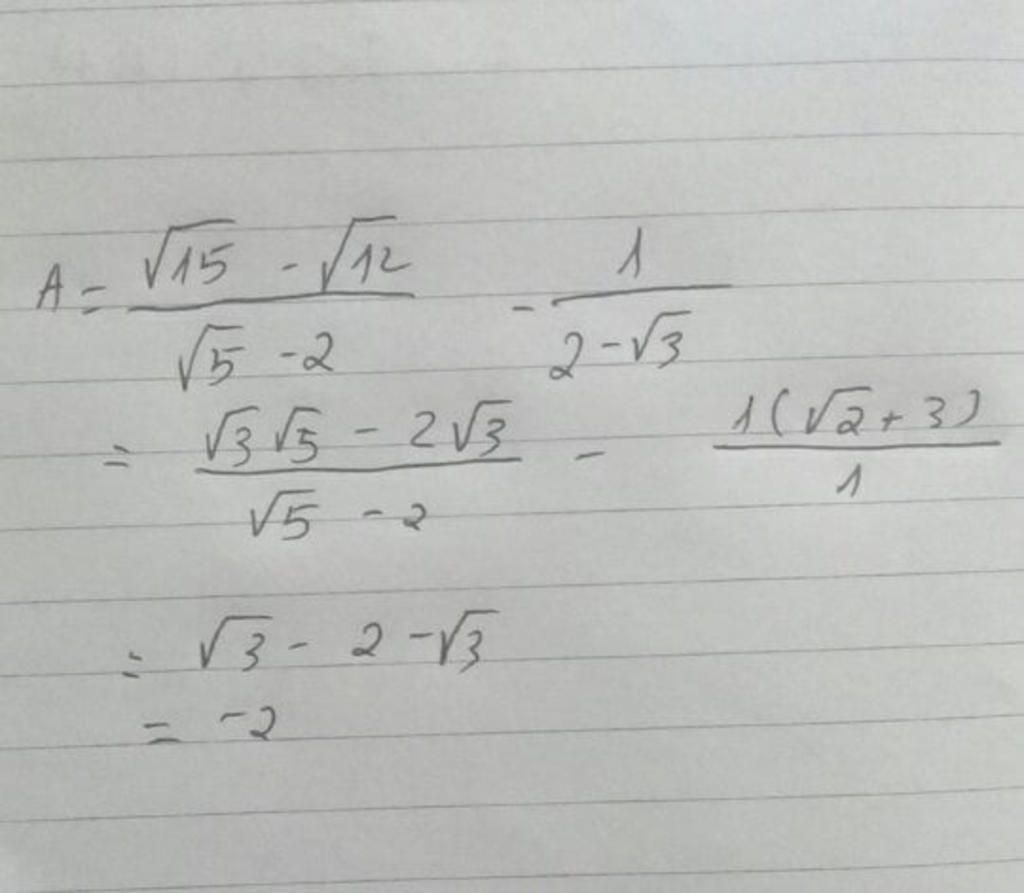 A = \frac{\sqrt{15} - \sqrt{12}}{\sqrt{5} - 2} - \frac{1}{2 - \sqrt{3}}
= \frac{\sqrt{3}\sqrt{5} - 2\sqrt{3}}{\sqrt{5} - 2} - \frac{1(\sqrt{2} + 3)}{1}
= \sqrt{3} - 2 - \sqrt{3}
= -2